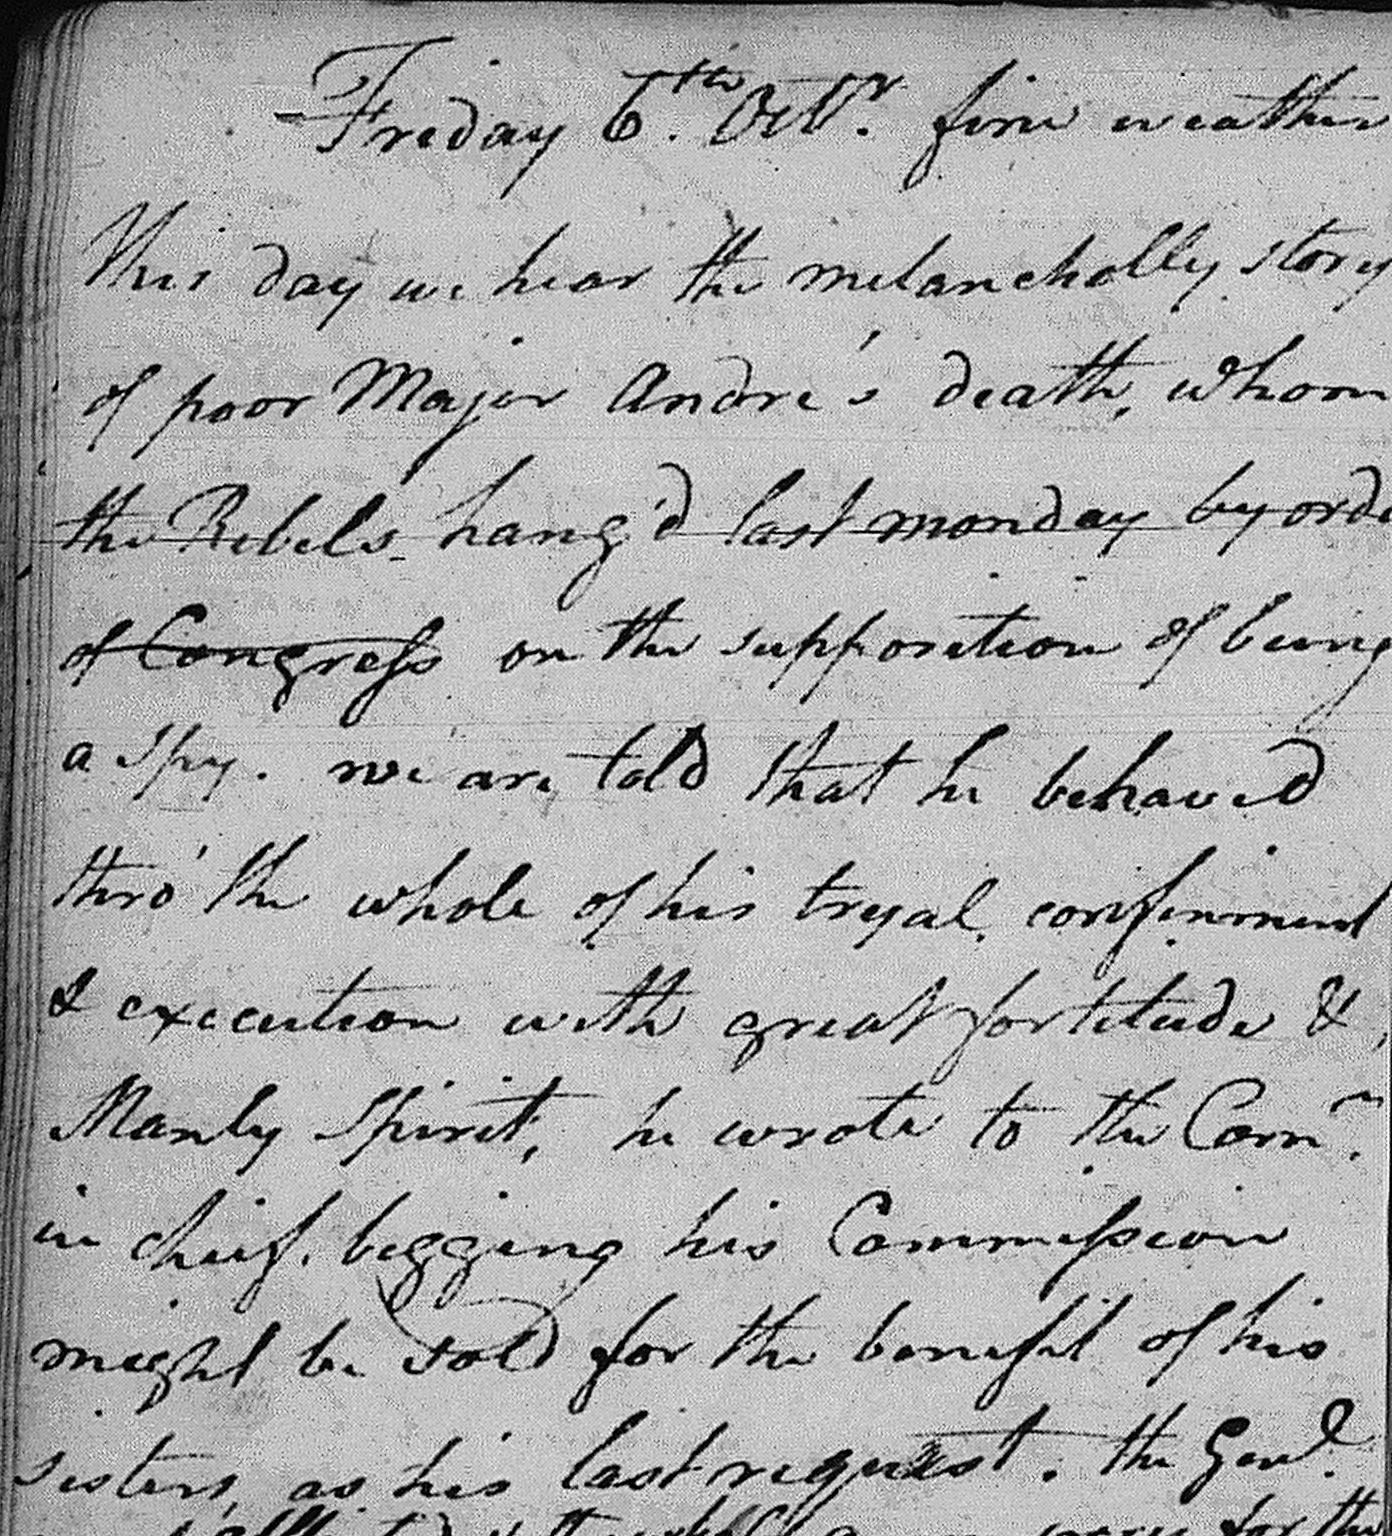 Friday 6.th Octbr. fine weather
This day we hear the melancholly story
of poor Major Andre's death, whom
the Rebels hang'd last monday by orde
of Congress on the supposition of being
a spy. we are told that he behaved
thro' the whole of his tryal, confinement
& execution with great fortitude &
Manly Spirit, he wrote to the Comr.
in chief, begging his Commission
might be sold for the benefit of his
sisters, as his last request. the Genl.